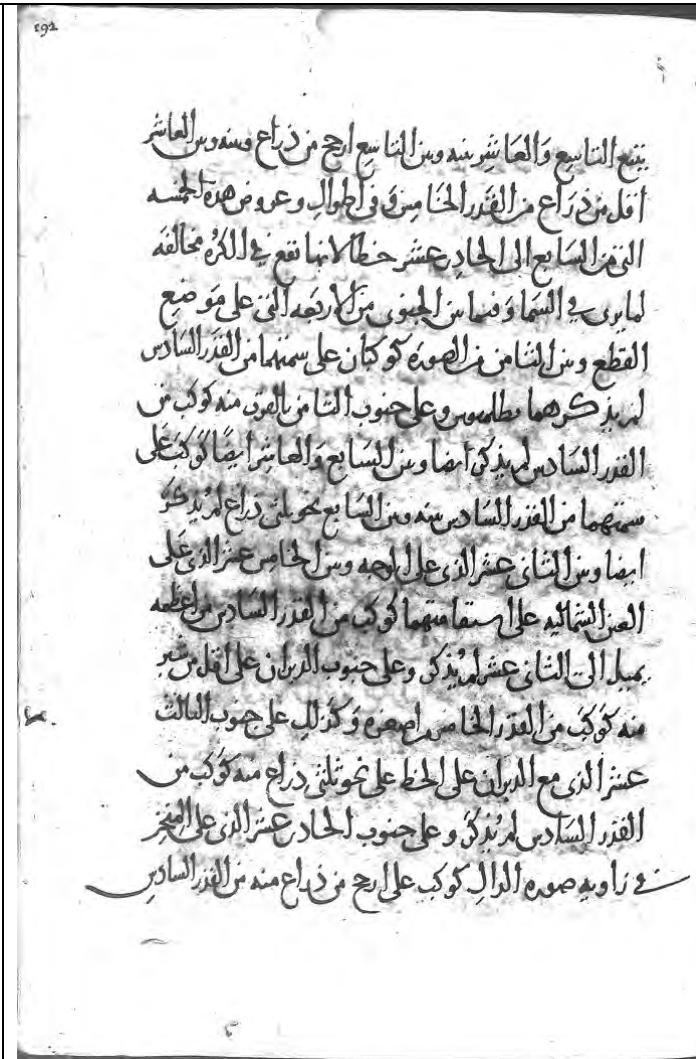 192
يتبع التاسع والعاشر بينه وبين التاسع ارجح من ذراع وبينه وبين العاشر
اقل من ذراع من القدر الخامس وفى اطوال وعروض هذه الخمسه
التى من السابع الى الحادى عشر خطا لانها تقع فى الكره مخالفه
لما يرى فى السما وفيما بين الجنوبى من الاربعه التى على موضع
القطع وبين الثامن من الصوره كوكبان على سمتهما من القدر السادس
لم يذكرهما بطلميوس وعلى جنوب الثامن بالقرب منه كوكب من
القدر السادس لم يذكر ايضا وبين السابع والعاشر ايضا كوكب على
سمتهما من القدر السادس بينه وبين السابع نحو ثلثى ذراع لم يذكر
ايضا وبين الثانى عشر الذى على الوجه وبين الخامس عشر الذى على
العين الشماليه على استقامتهما كوكب من القدر السادس من اعظمه
يميل الى الثانى عشر لم يذكر وعلى جنوب الدبران على اقل من شبر
منه كوكب من القدر الخامس من اصغره وكذلك على جنوب الثالث
عشر الذى مع الدبران على الخط على نحو ثلثى ذراع منه كوكب من
القدر السادس لم يذكر وعلى جنوب الحادى عشر الذى على المنخر
فى زاويه صوره الدال كوكب على ارجح من ذراع منه من القدر السادس